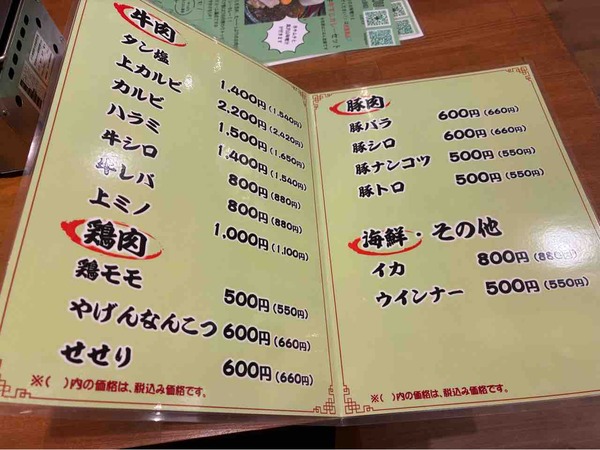 牛肉
タン塩 1,400円(1,540円)
上カルビ 2,200円(2,420円)
カルビ 1,500円(1,650円)
ハラミ 1,400円(1,540円)
牛シロ 800円(880円)
牛レバ 800円(880円)
上ミノ 1,000円(1,100円)
鶏肉
鶏モモ 500円(550円)
やげんなんこつ 600円(660円)
せせり 600円(660円)
※( )内の価格は、税込み価格です。
豚肉
豚バラ 600円(660円)
豚シロ 600円(660円)
豚ナンコツ 500円(550円)
豚トロ 500円(550円)
海鮮・その他
イカ 800円(880円)
ウインナー 500円(550円)
※( )内の価格は、税込み価格です。